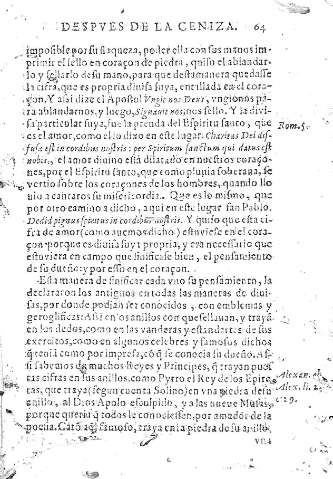 DESPVES DE LA CENIZA. 64
imposible por su flaqueza, poder ella con sus manos im-
primir el sello en coraçon de piedra, quiso el ablandar-
lo y sellarlo de su mano, para que desta manera quedasse
la cifra, que es propria diuisa suya, entallada en el cora-
çon. Y assi dize el Apostol Vngit nos Deus, vngionos pa
ra ablandarnos, y luego, Signauit nos, nos sello. Y la diui
sa particular suya, fue la prenda del Espiritu santo, que
es el amor, como ello dixo en este lugar Charitas Dei dif-
fusa est in cordibus nostris: per Spiritum sanctum qui datus est
Rom. 5.
nobis, el amor diuino está dilatado en nuestros coraço
nes, por el Espiritu santo, que como pluuia soberana, se
vertio sobre los coraçones de los hombres, quando llo
uio a cantaros su misericordia. Que es lo mismo, que
por otro camino a dicho, aqui en este lugar san Pablo.
Dedit pignus spiritus in cordibus nostris. Y quiso que esta ci
fra de amor (como auemos dicho) estuuiesse en el cora
çon porque es diuisa suya propria, y era necessario que
estuuiera en campo que sinificasse bien, el pensamiento
de su dueño: y por esso en el coraçon.
Esta manera de sinificar cada vno su pensamiento, la
declararon los antiguos en todas las maneras de diui-
sas, por donde podian ser conocidos, con emblemas y
geroglificas: Assi en los anillos con que sellauan, y traya
en los dedos, como en las vanderas y estandartes de sus
exercitos, como en algunos celebres y famosos dichos
q tenia como por impresa, có q se conocia su dueño. Assi
sabemos de muchos Reyes y Principes, q trayan pues
tas cifras en sus anillos, como Pyrro el Rey de los Epiro
Alexan. ab
tas, que traya (segun cuenta Solino) en vna piedra de su
Alex. li. 2.
anillo, al Dios Apolo esculpido, y a las nueue Musas,
porque queria q todos le conociessen, por amador de la
poesia. Cató famoso, traya en la piedra de su anillo,